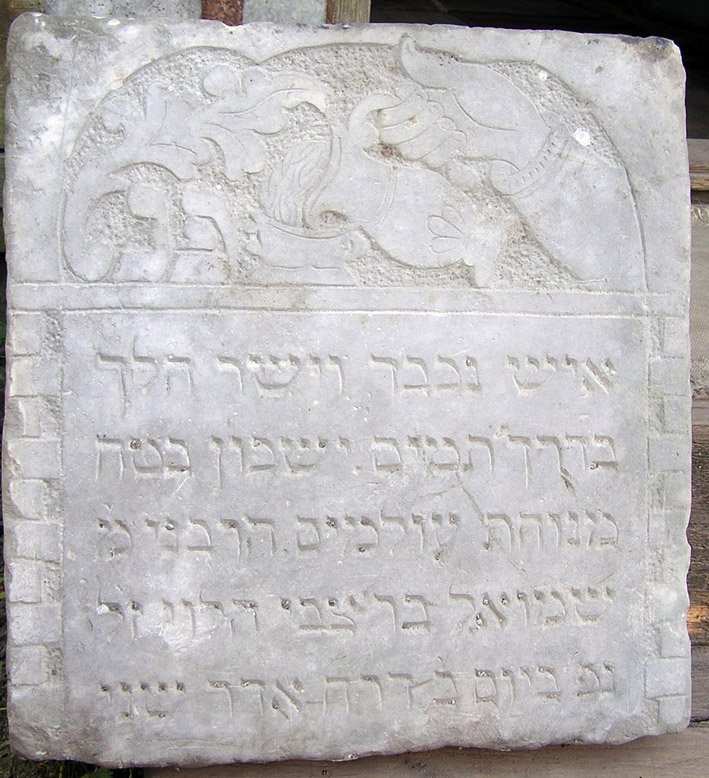 פנ
איש נכבד וישר הלך
בדרך תמים ישכון בטח
מנוחת עולמים הרבני מ'
שמואל בר צבי הלוי זל
נפ' ביום ב דרח אדר שני